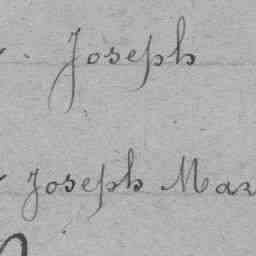 Joseph
Joseph Mar